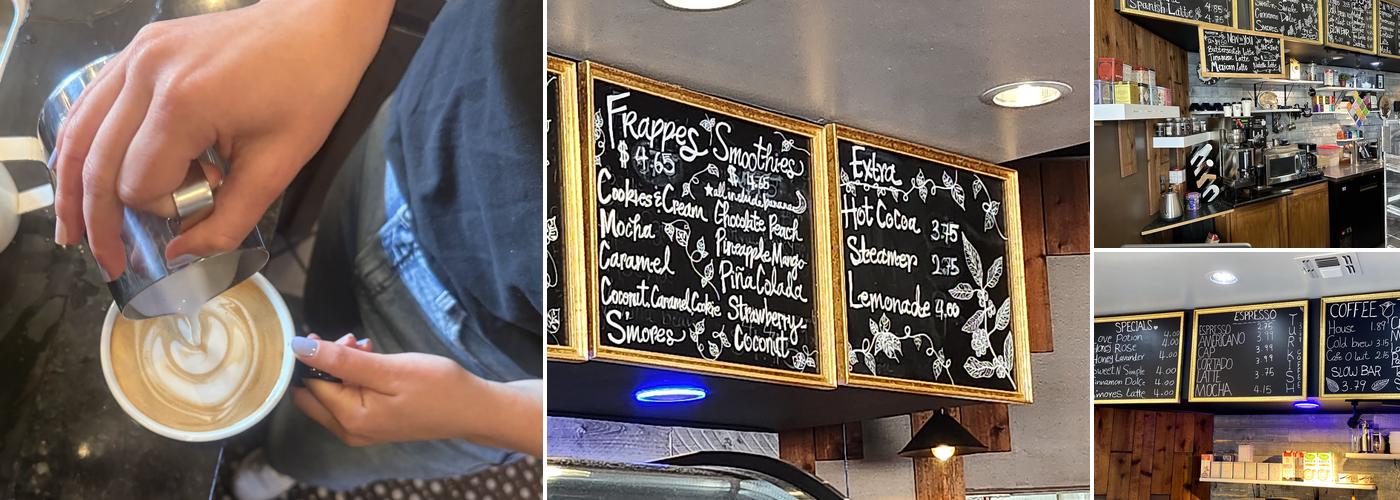 Frappes
$ 4.65
Cookies & Cream
Mocha
Caramel
Coconut. Caramel Cookie
S'mores
Smoothies
$ 4.65
★all include banana
Chocolate Peach
Pineapple Mango
Piña Colada
Strawberry-
Coconut
Extra
Hot Cocoa 3.75
Steamer 2.75
Lemonade 4.00
Spanish Latte 4.85
4.75
Cinnamon Dolce
S'mores
New to You
Butterscotch Latte
Tiramisu Latte
Mexican Latte
SPECIALS
Love Potion 4.00
Honey Rose 4.00
Honey Lavender 4.00
Sweet N Simple 4.00
Cinnamon Dolce 4.00
Smores Latte 4.00
ESPRESSO
ESPRESSO 2.75
AMERICANO 3.99
CAP 3.99
CORTADO 3.99
LATTE 3.75
MOCHA 4.15
TURKISH
COFFEE
House 1.89
Cold brew 3.15
Cafe O lait 2.15
SLOW BAR
3.79